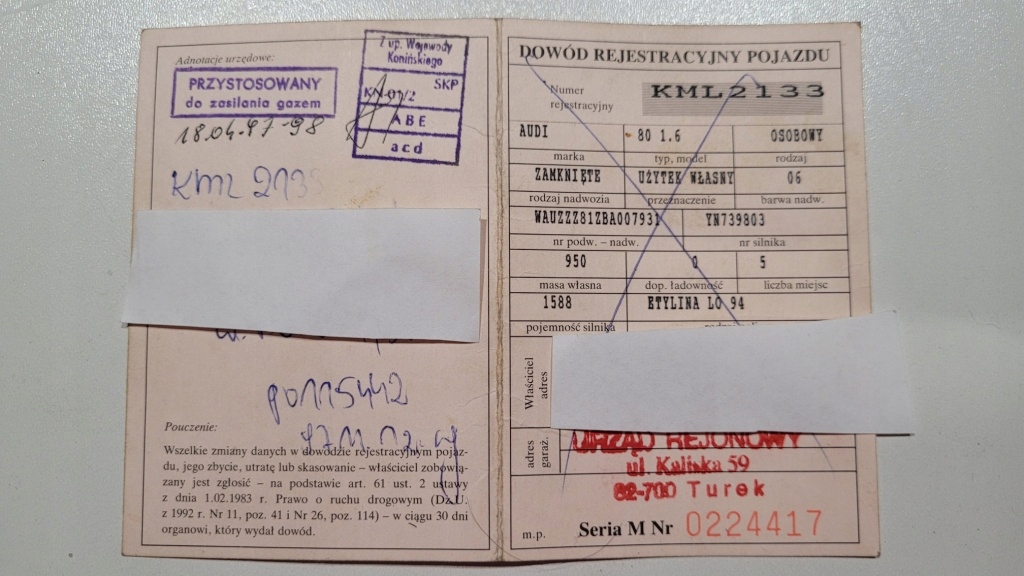 Adnotacje urzędowe:
PRZYSTOSOWANY
do zasilania gazem
18.04.97-98
Z up. Wojewody
Konińskiego
SKP
KN-01/2
ABE
acd
KML 2133
Pouczenie:
Wszelkie zmiany danych w dowodzie rejestracyjnym pojaz-
du, jego zbycie, utratę lub skasowanie – właściciel zobowią-
zany jest zgłosić – na podstawie art. 61 ust. 2 ustawy
z dnia 1.02.1983 r. Prawo o ruchu drogowym (Dz.U.
z 1992 r. Nr 11, poz. 41 i Nr 26, poz. 114) – w ciągu 30 dni
organowi, który wydał dowód.
DOWÓD REJESTRACYJNY POJAZDU
Numer
rejestracyjny
KML2133
AUDI 80 1.6 OSOBOWY
marka typ, model rodzaj
ZAMKNIĘTE UŻYTEK WŁASNY 06
rodzaj nadwozia przeznaczenie barwa nadw.
WAUZZZ81ZBA007931 YN739803
nr podw. – nadw. nr silnika
950 0 5
masa własna dop. ładowność liczba miejsc
1588 ETYLINA LO 94
pojemność silnika
Właściciel
adres
adres
garaż.
URZĄD REJONOWY
ul. Kaliska 59
62-700 Turek
m.p. Seria M Nr 0224417